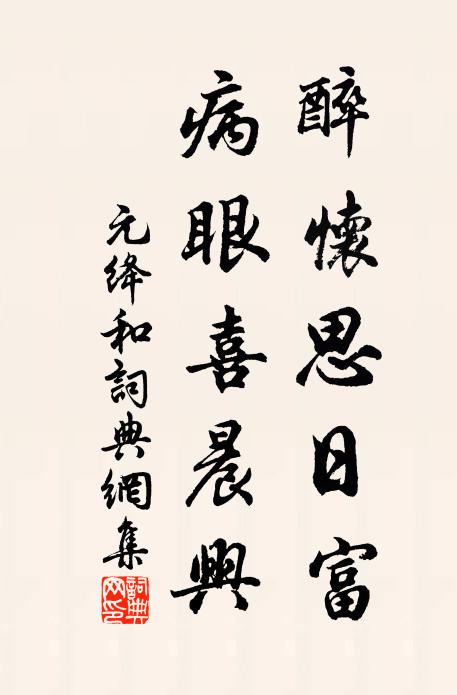 醉懷思日富
病眼喜晨興
元絳和詞典網集
詞典網印